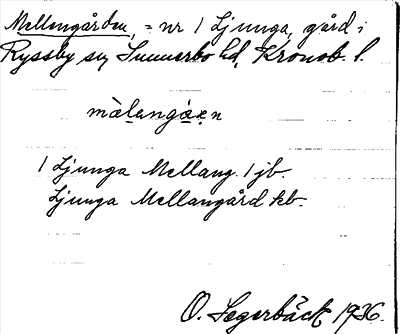 Mellangården, = nr 1 Ljunga, gård i
Ryssby sn, Sunnerbo hd, Kronob. l.
màlangạ̊ṛn
1 Ljunga Mellang. 1 jb.
Ljunga Mellangård kb.
O. Segerbäck 1936.